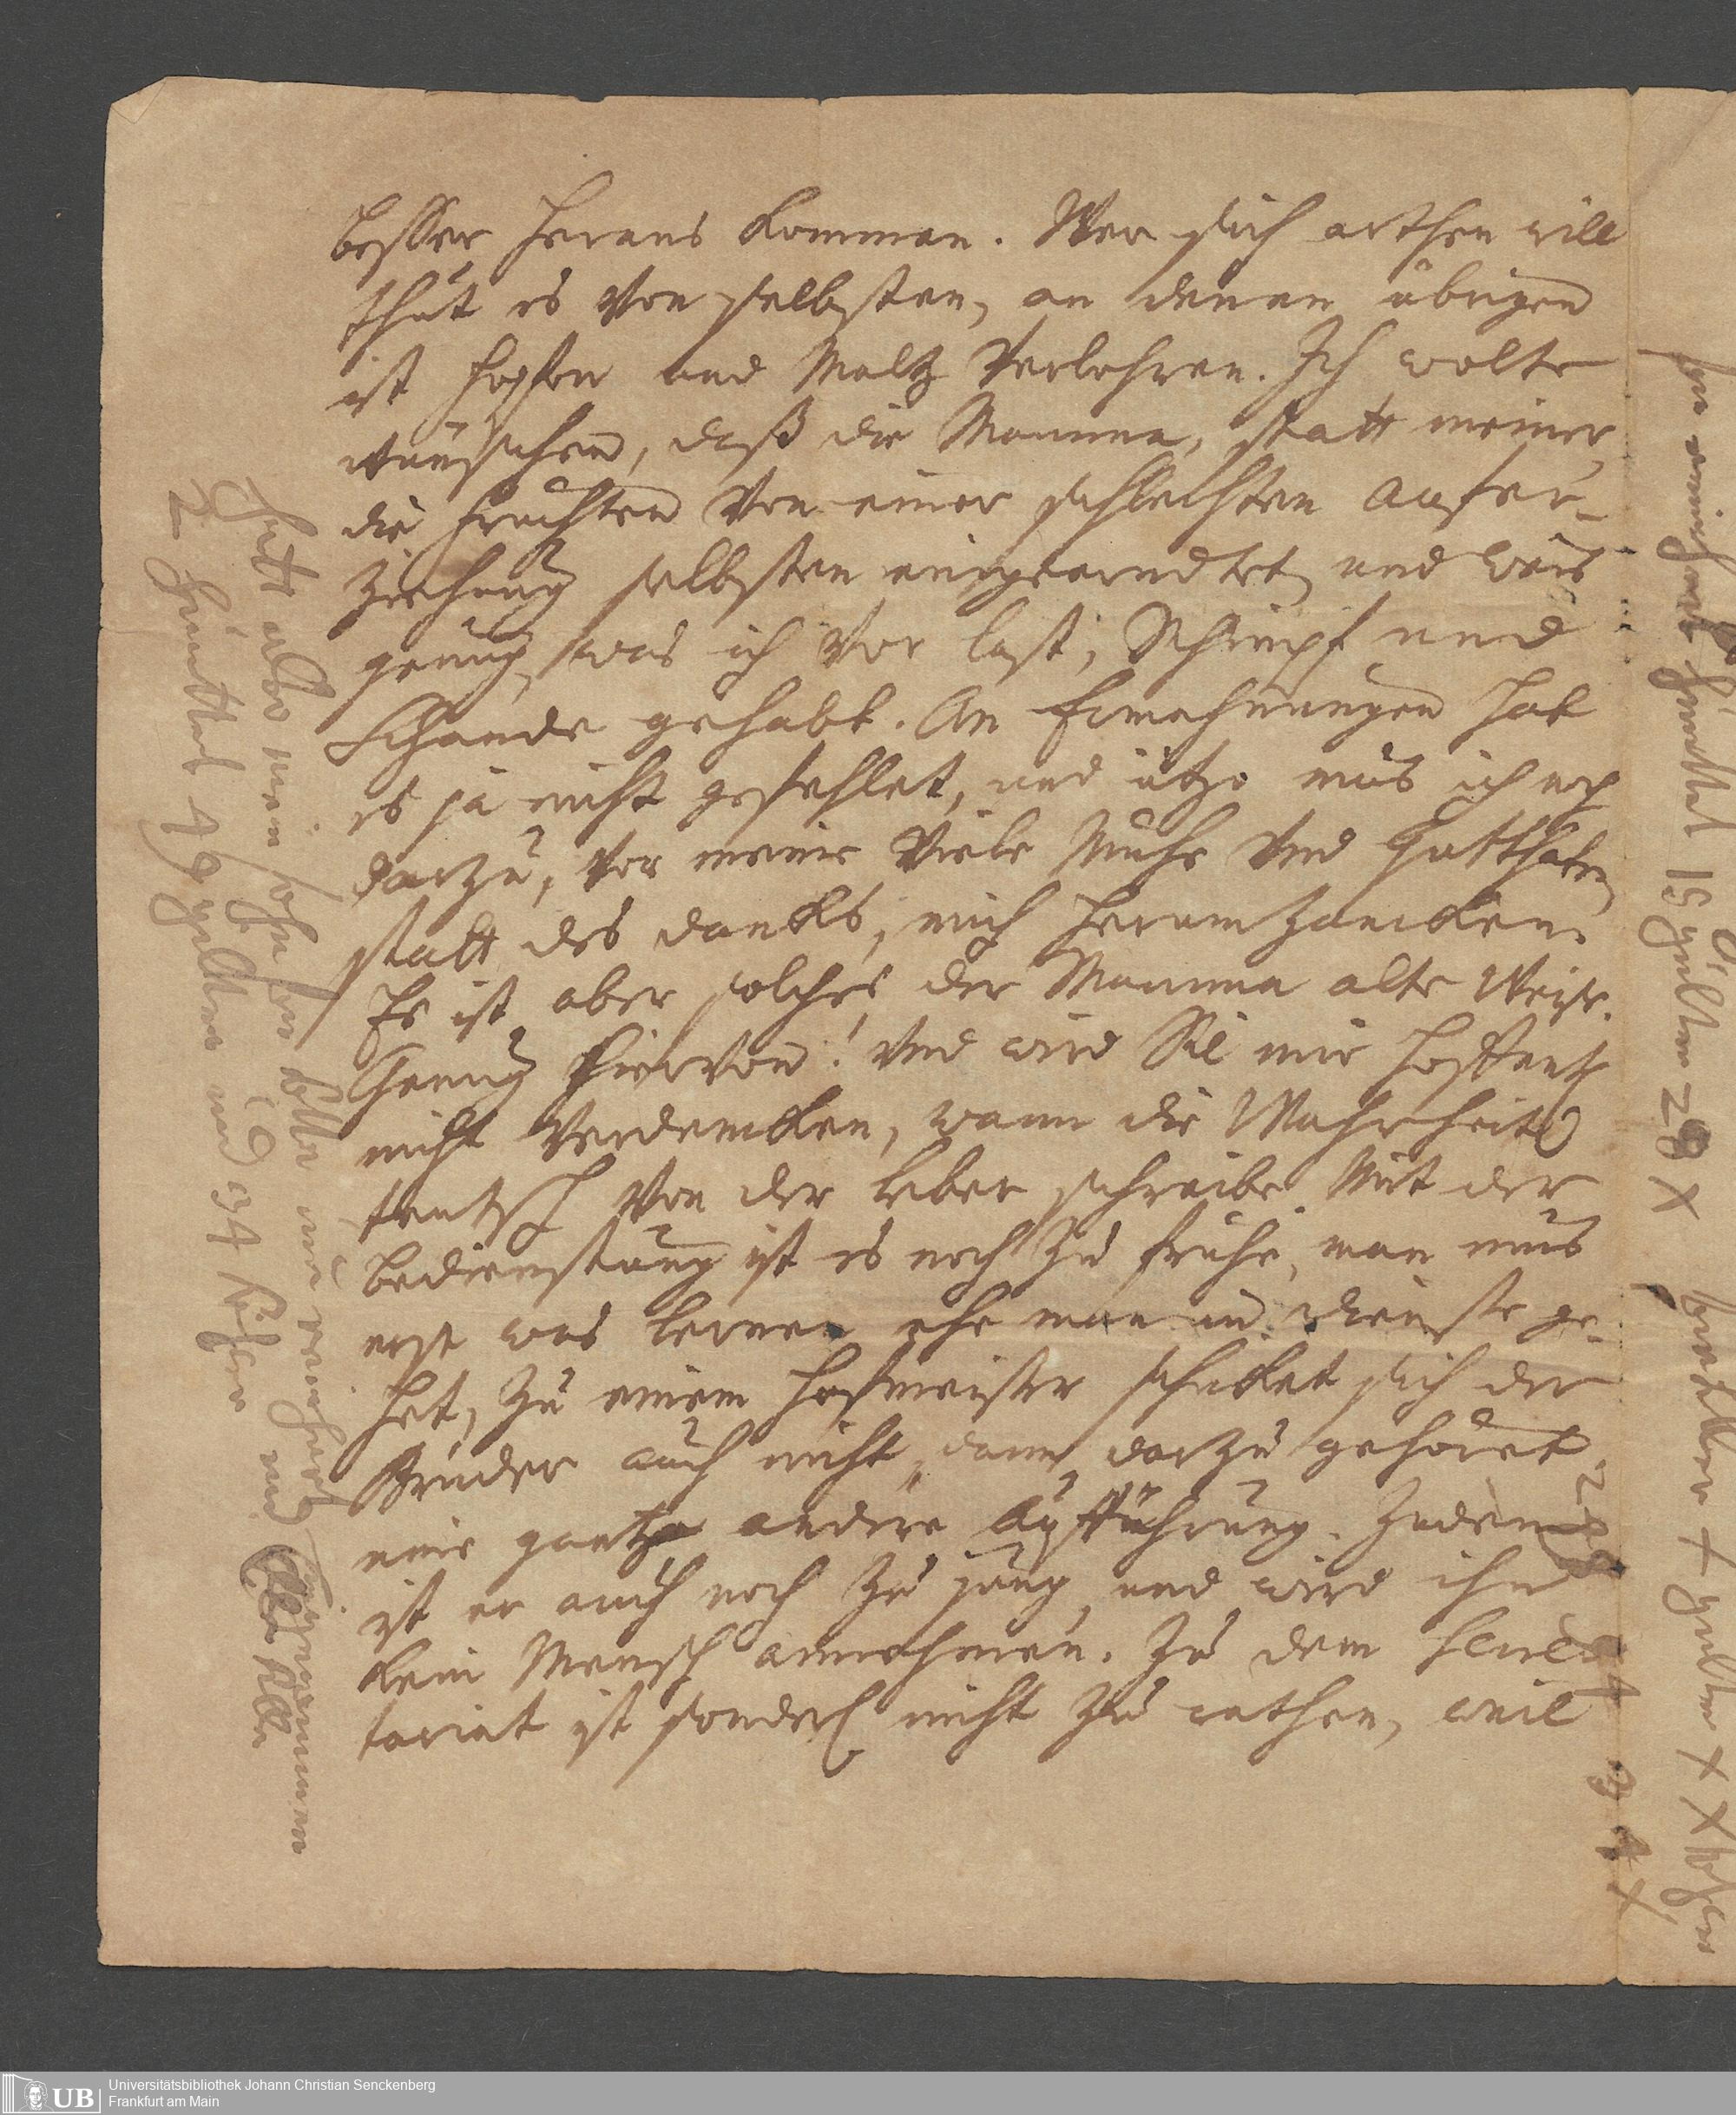 besser heraus kommen. Wer sich arthen will
thut es von selbsten, an denen übrigen
ist Hopfen und Maltz verlohren. Ich wolte
wünschen, daß die Mamma, statt meiner
die Früchten von einer schlechten Aufer-
ziehung selbsten eingearndtet, und weis
genug, was ich vor last, Schimpf und
Schande gehabt. An Ermahnungen hat
es ja nicht gefehlet, und itzo mus ich noch
darzu, vor meine viele Mühe und Gutthaten
statt des dancks, mich herum zancken.
Es ist aber solches der Mamma alte Weise.
Genug hiervon! und wird Sie mir hoffentl.
nicht verdencken, wann die Wahrheit
teutsch von der Leber schreibe. Mit der
bedienstung ist es noch zu frühe, man mus
erst was lernen ehe man in dienste ge-
het, zu einem Hofmeister schicket sich der
Bruder auch nicht, dann darzu gehöret
eine gantz andere Aufführung. Zudem
ist er auch noch zu jung, und wird ihn
kein Mensch annehmen. Zu dem
tariat ist sonderl. nicht zu rathen, weil
mein sohn
19 gulten und 34
15 gulten 28 x
gulten
34 x
UB
Universitätsbibliothek Johann Christian Senckenberg
Frankfurt am Main